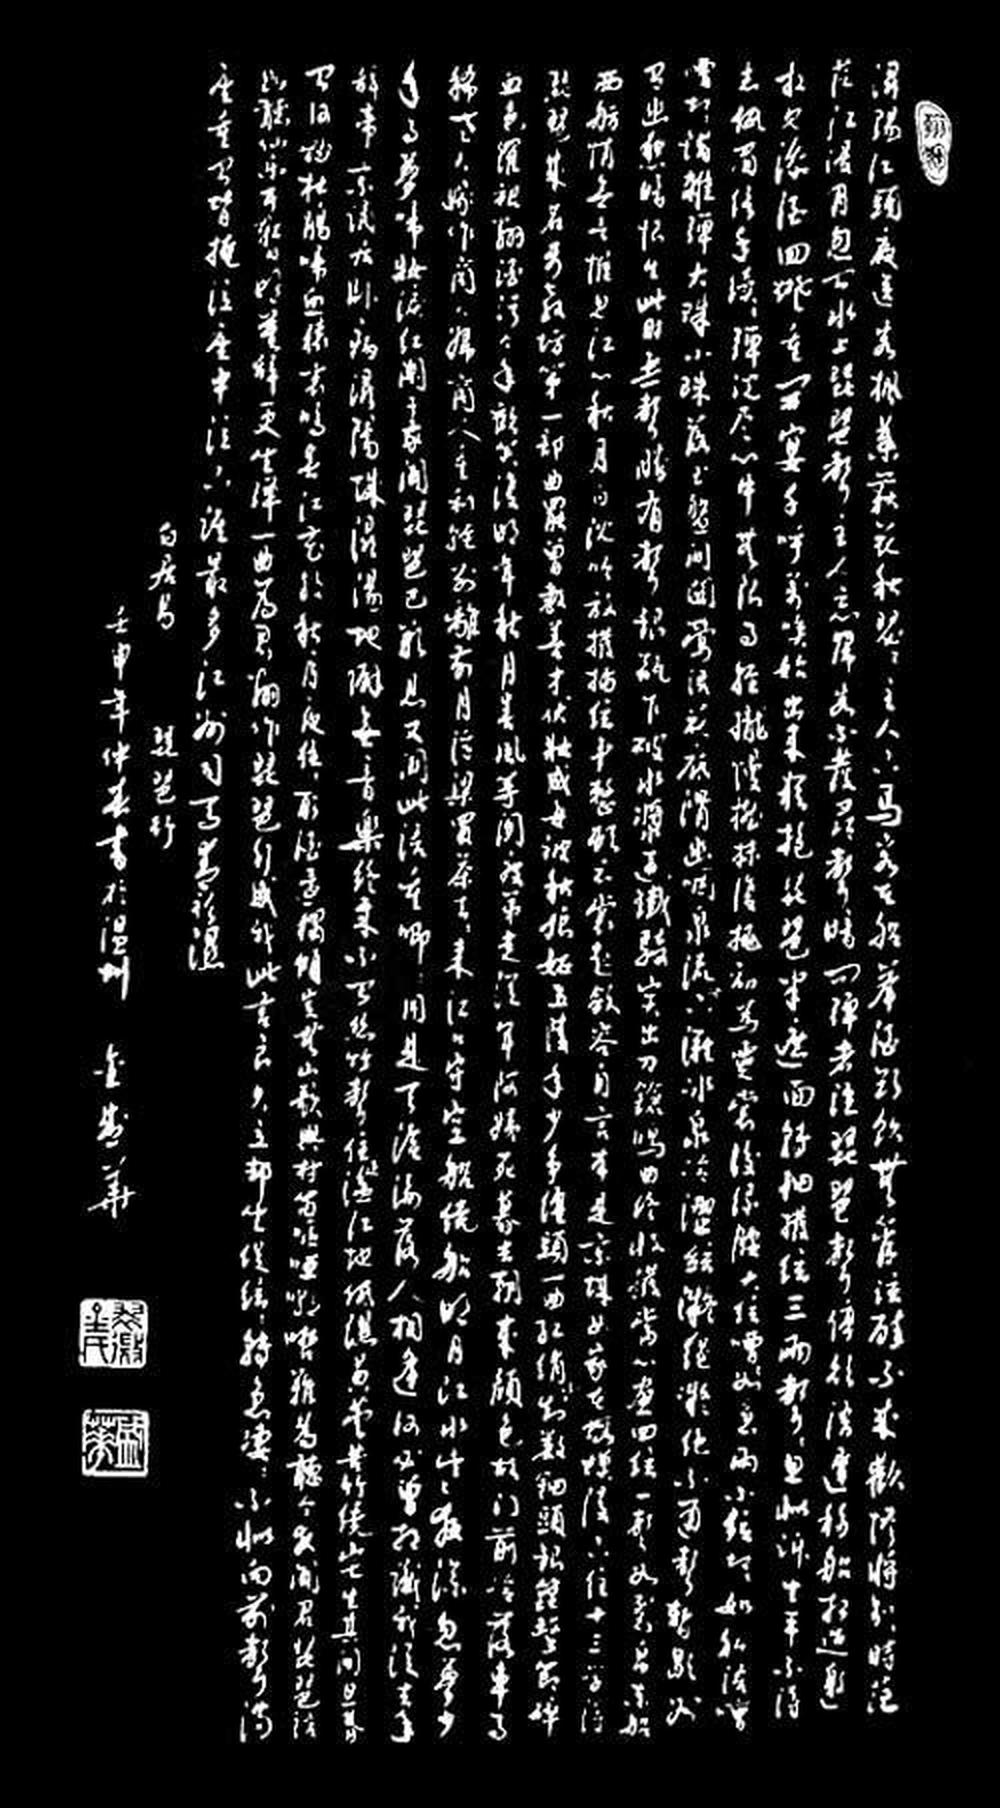 潯陽江頭夜送客楓葉荻花秋瑟瑟主人下馬客在船舉酒欲飲無管絃醉不成歡慘將別時茫
茫江浸月忽聞水上琵琶聲主人忘歸客不發尋聲暗問彈者誰琵琶聲停欲語遲移船相近邀
相見添酒回燈重開宴千呼萬喚始出來猶抱琵琶半遮面轉軸撥絃三兩聲聲思似訴生平不得
志低眉信手續續彈說盡心中無限事輕攏慢撚抹復挑初為霓裳後綠腰大絃嘈嘈如急雨小絃切切如私語嘈
嘈切切錯雜彈大珠小珠落玉盤間關鶯語花底滑幽咽泉流下灘冰泉冷澀絃凝絕凝絕不通聲暫歇別
有幽愁暗恨生此時無聲勝有聲銀瓶乍破水漿迸鐵騎突出刀鎗鳴曲終收撥當心畫四絃一聲如裂帛東船
西舫悄無言惟見江心秋月白沈吟放撥插絃中整頓衣裳起斂容自言本是京城女家在蝦蟆陵下住十三學得
琵琶成名屬教坊第一部曲罷曾教善才伏妝成每被秋娘妒五陵年少爭纏頭一曲紅綃不知數鈿頭銀篦擊節碎
血色羅裙翻酒污今年歡笑復明年秋月春風等閑度弟走從軍阿姨死暮去朝來顏色故門前冷落車馬
稀老大嫁作商人婦商人重利輕別離前月浮梁買茶去去來江口守空船繞船明月江水寒夜深忽夢少
年事夢啼妝淚紅闌干我聞琵琶已歎息又聞此語重唧唧同是天涯淪落人相逢何必曾相識我從去年
辭帝京謫居臥病潯陽城潯陽地僻無音樂終歲不聞絲竹聲住近湓江地低濕黃蘆苦竹繞宅生其間旦暮
聞何物杜鵑啼血猿哀鳴春江花朝秋月夜往往取酒還獨傾豈無山歌與村笛嘔啞嘲哳難為聽今夜聞君琵琶語
如聽仙樂耳暫明莫辭更坐彈一曲為君翻作琵琶行感我此言良久立卻坐促絃絃轉急淒淒不似向前聲滿
座重聞皆掩泣座中泣下誰最多江州司馬青衫濕
白居易 琵琶行
壬申年仲春書於溫州 金盛華